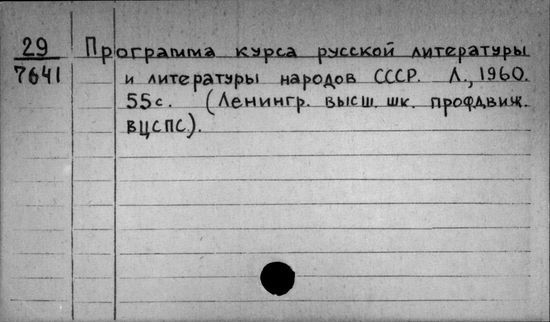 29
7641
Программа курса русской литературы
и литературы народов СССР. Л., 1960.
55с. (Ленингр. высш. шк. профдвиж.
ВЦСПС).